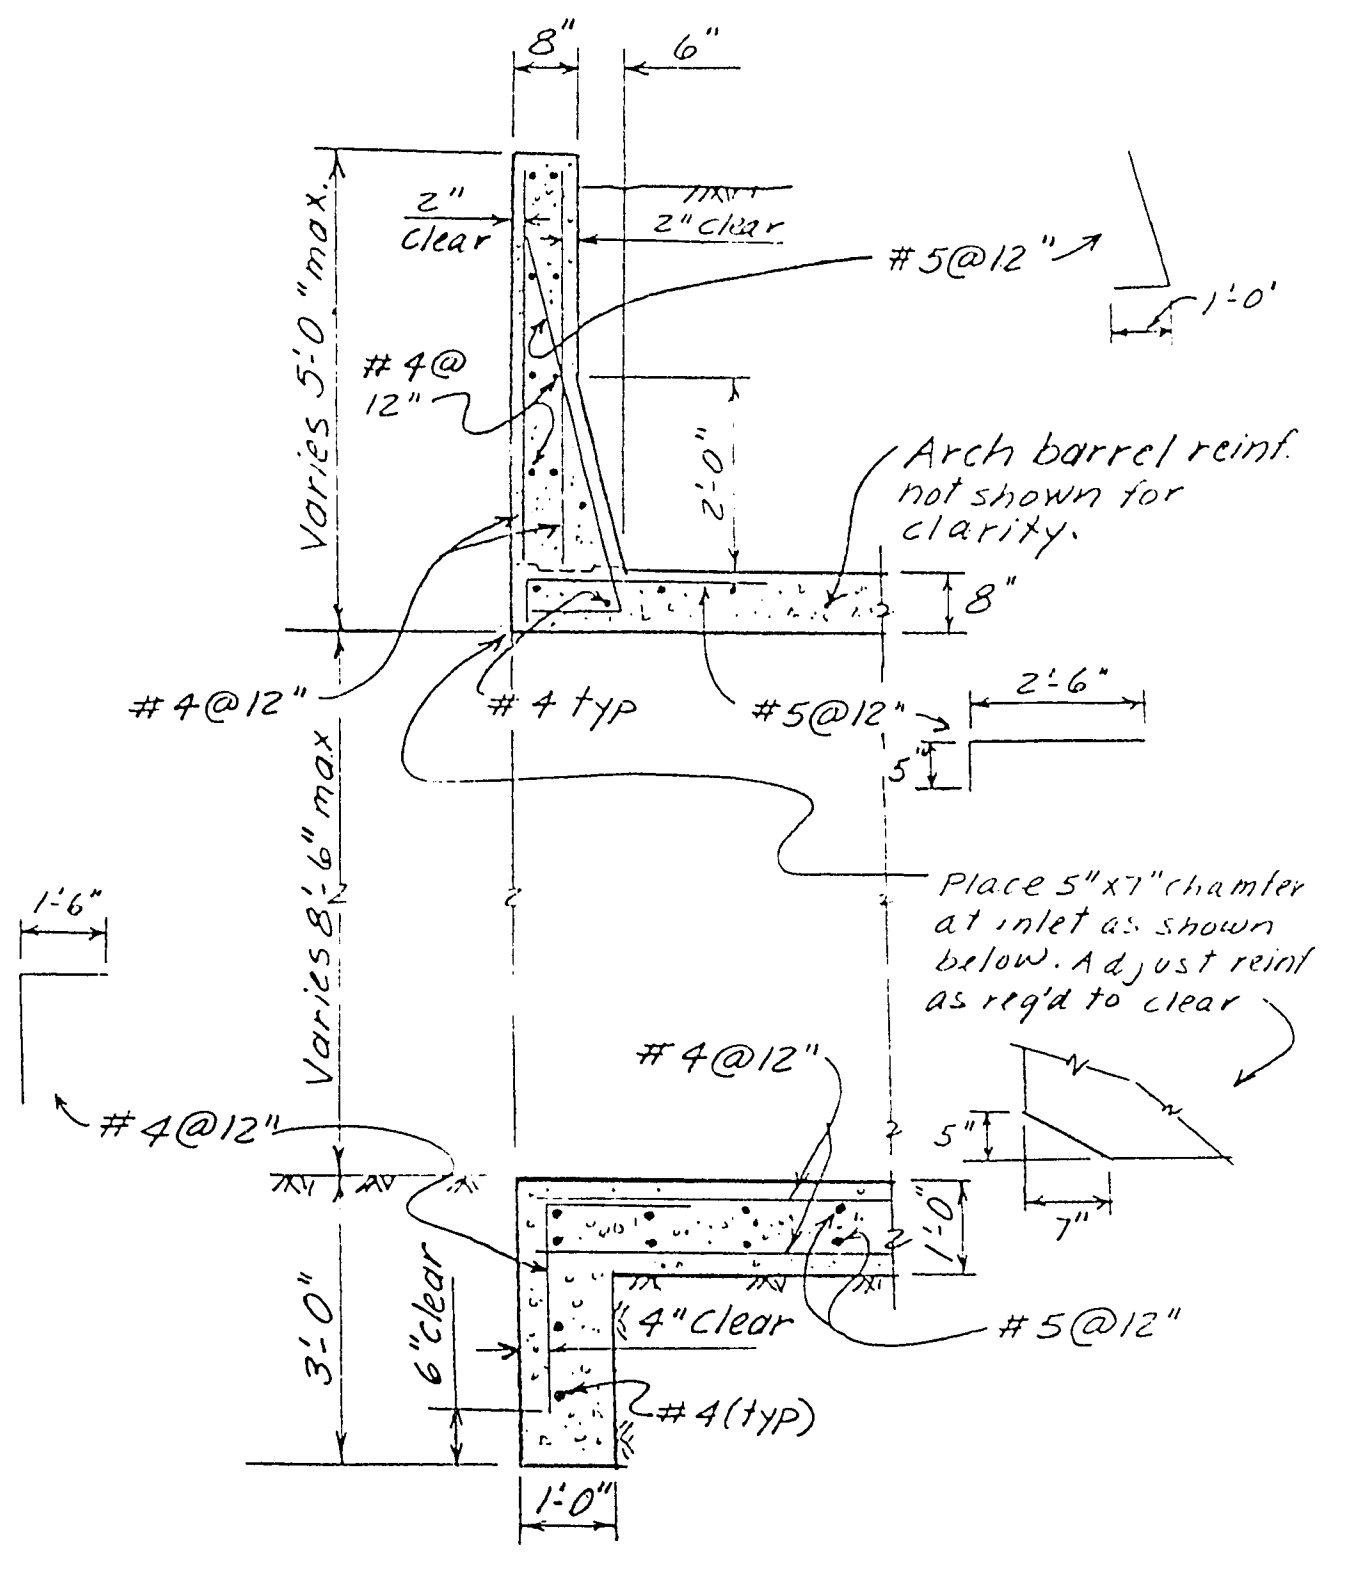 8"
6"
2"
clear
2" clear
Varies 5'-0" max.
#5@12"
1'-0'
#4@
12"
2'-0"
Arch barrel reinf.
not shown for
clarity.
8"
#4@12"
#4 typ
#5@12"
2'-6"
5"
Varies 8'-6" max
Place 5"x7" chamfer
at inlet as shown
below. Adjust reinf
as req'd to clear
1'-6"
#4@12"
#4@12"
5"
7"
1'-0"
3'-0"
6" clear
4" Clear
#5@12"
#4(typ)
1'-0"